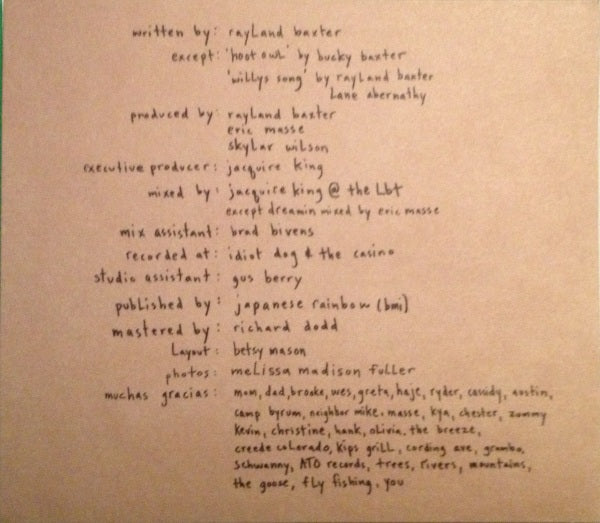 written by: rayland baxter
except: 'hoot owl' by bucky baxter
'willys song' by rayland baxter
lane abernathy
produced by: rayland baxter
eric masse
skylar wilson
executive producer: jacquire king
mixed by: jacquire king @ the Lbt
except dreamin mixed by eric masse
mix assistant: brad bivens
recorded at: idiot dog & the casino
studio assistant: gus berry
published by: japanese rainbow (bmi)
mastered by: richard dodd
layout: betsy mason
photos: melissa madison fuller
muchas gracias: mom, dad, brooke, wes, greta, haje, ryder, cassidy, austin,
camp byrum, neighbor mike, masse, kya, chester, zummy
kevin, christine, hank, olivia, the breeze,
creede colorado, kips grill, cording ave, grambo,
schwanny, ATO records, trees, rivers, mountains,
the goose, fly fishing, you